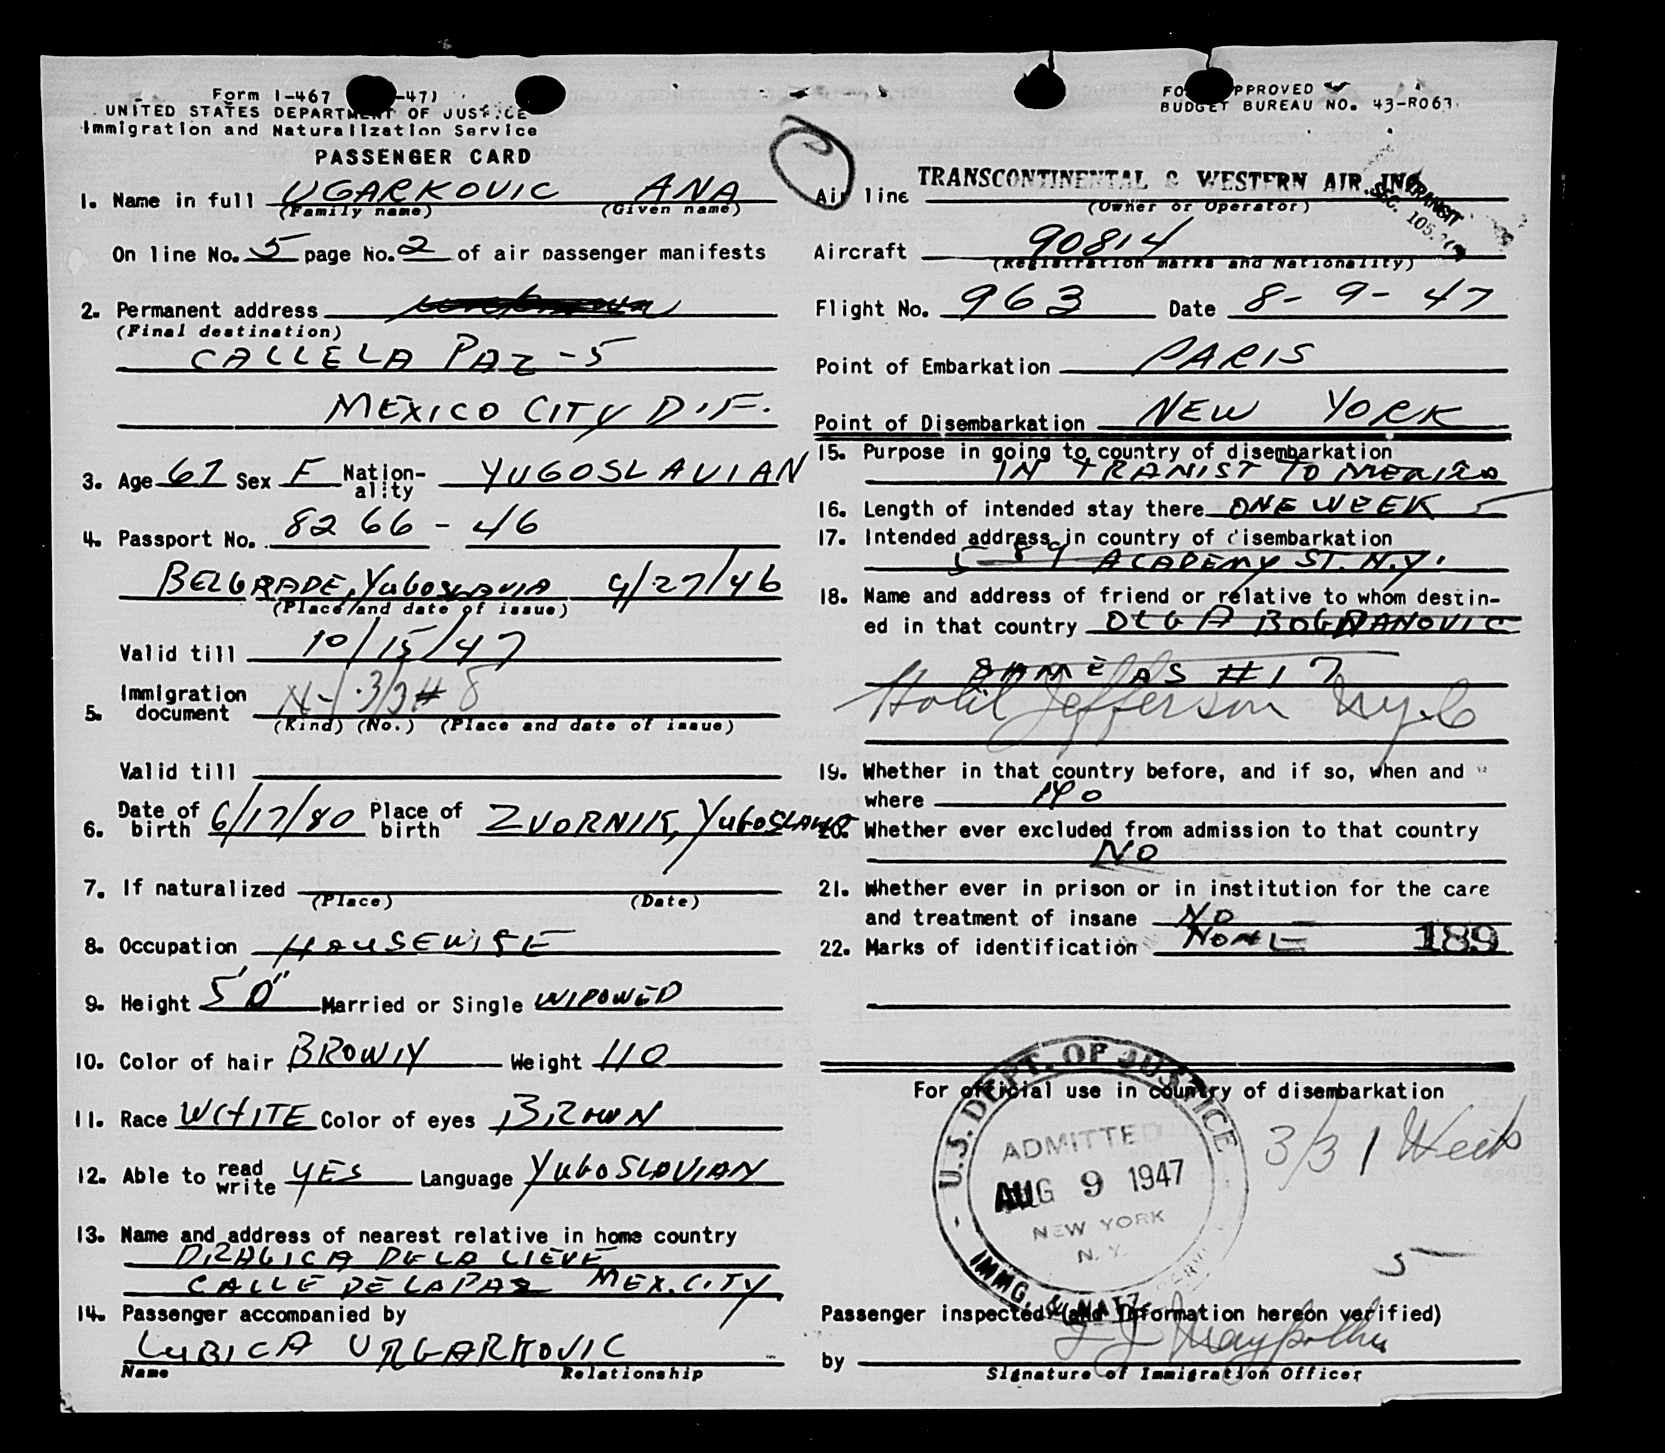 Form I-467 -47)
UNITED STATES DEPARTMENT OF JUSTICE
Immigration and Naturalization Service
PASSENGER CARD
1. Name in full UGARKOVIC ANA
(Family name) (Given name)
On line No. 5 page No. 2 of air passenger manifests
2. Permanent address
(Final destination)
CALLE LA PAZ - 5
MEXICO CITY D.F.
3. Age 67 Sex F Nation-ality YUGOSLAVIAN
4. Passport No. 8266-46
BELGRADE, YUGOSLAVIA 9/27/46
(Place and date of issue)
Valid till 10/15/47
5. Immigration document
(Kind) (No.) (Place and date of issue)
Valid till
6. Date of birth 6/17/80 Place of birth ZVORNIK, YUGOSLAVIA
7. If naturalized
(Place) (Date)
8. Occupation HOUSEWIFE
9. Height 5'0" Married or Single WIDOWED
10. Color of hair BROWN Weight 110
11. Race WHITE Color of eyes BROWN
12. Able to read write YES Language YUGOSLAVIAN
13. Name and address of nearest relative in home country
DRAGICA DE LA LIEVE
CALLE DE LA PAZ MEX. CITY
14. Passenger accompanied by
LUBICA URGARKOVIC
Name Relationship
FO PPROVED
BUDGET BUREAU NO. 43-R063.
Air line TRANSCONTINENTAL & WESTERN AIR, INC.
(Owner or Operator)
TRANSIT
SEC. 105.
Aircraft 90814
(Registration marks and Nationality)
Flight No. 963 Date 8-9-47
Point of Embarkation PARIS
Point of Disembarkation NEW YORK
15. Purpose in going to country of disembarkation
IN TRANIST TO MEXICO
16. Length of intended stay there ONE WEEK
17. Intended address in country of disembarkation
589 ACADEMY ST. N.Y.
18. Name and address of friend or relative to whom destin-
ed in that country OLGA BOGDANOVIC
SAME AS #17
Hotel Jefferson Nyc
19. Whether in that country before, and if so, when and
where NO
20. Whether ever excluded from admission to that country
NO
21. Whether ever in prison or in institution for the care
and treatment of insane NO
22. Marks of identification NONE 189
For official use in country of disembarkation
3/3 1 Week
U.S. DEPT. OF JUSTICE
ADMITTED
AUG 9 1947
NEW YORK
N.Y.
IMMG. & NATZ.
5
Passenger inspected (and information hereon verified)
by
Signature of Immigration Officer